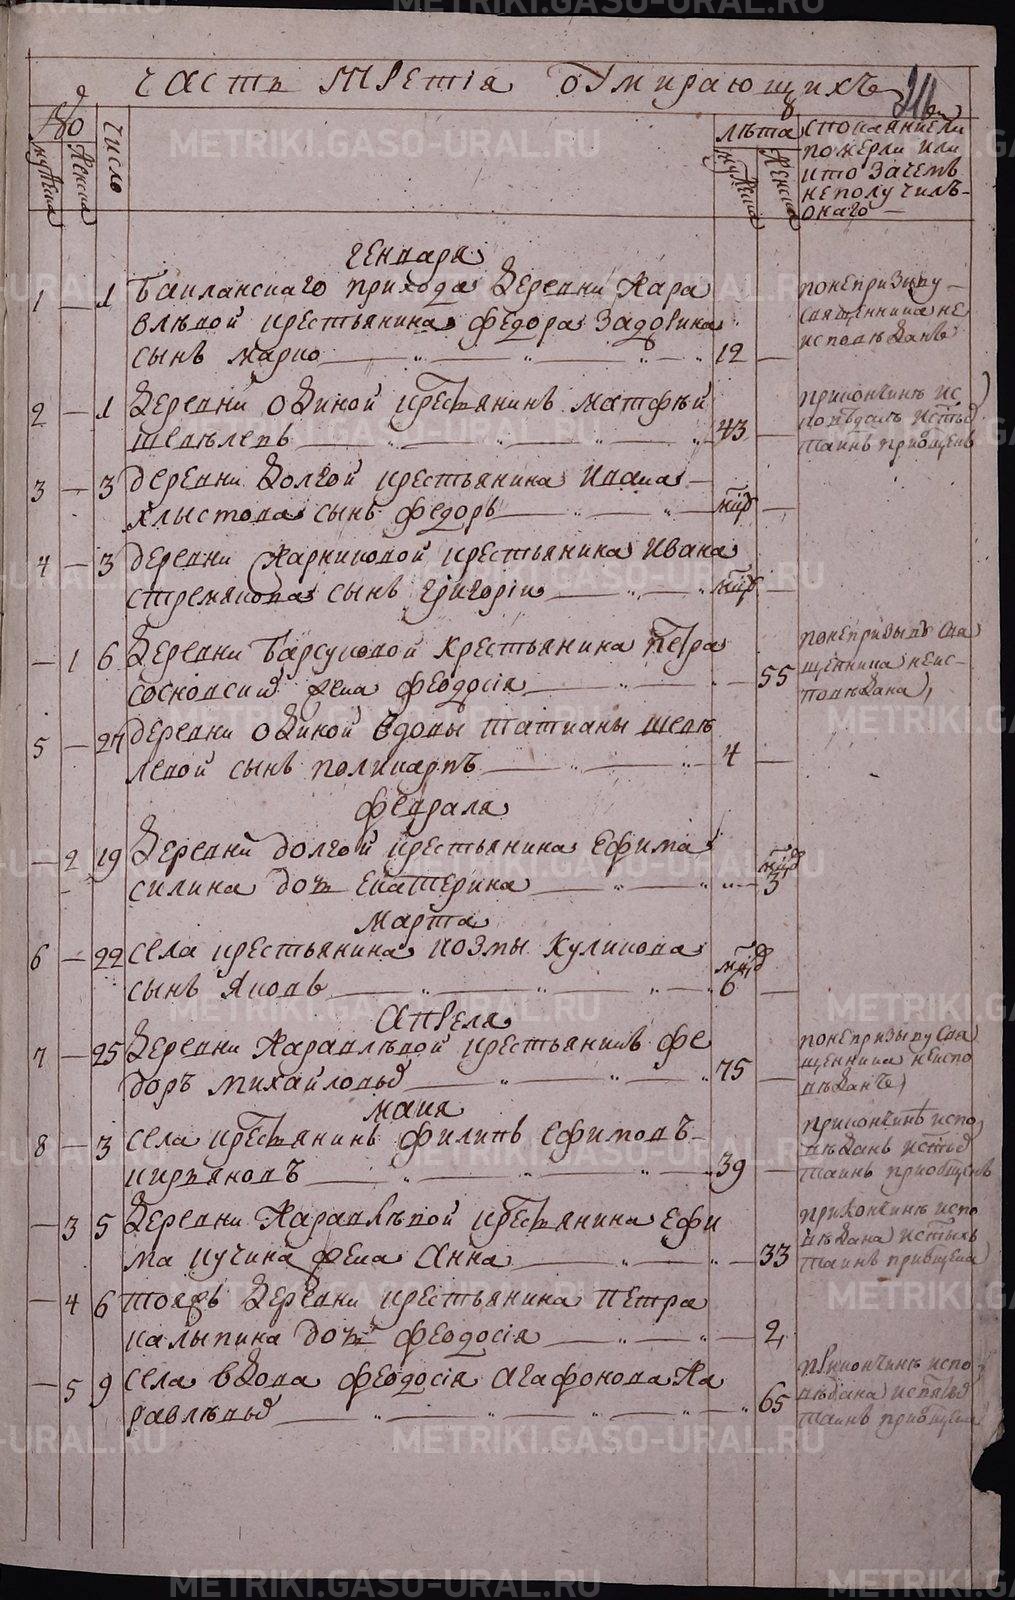 METRIKI.GASO-URAL.RU
часть третiа оумирающихъ
число
мужеска
женска
лѣта
мужеска
женска
спокаянiели
померли или
кто зачемъ
не получилъ
онаго
генваря
1 — 1 Баиланскаго прихода деревни Кара
влѣвой крестьянина федора Задорина
сынъ марко 12 —
понепризыву
священника не
исповѣданъ
2 — 1 деревни овиной крестянинъ матфѣй
шевѣлевъ 43 —
прикончинѣ ис
повѣданъ истыхъ
таинъ приобщенъ
3 — 3 деревни долгой крестьянина Ивана
хлыстова сынъ федоръ —
4 — 3 деревни Карниловой крестьянина Ивана
стремякова сынъ григорiи —
— 1 6 деревни барсуковой крестьянина петра
сосновский жена феодосiя — 55
понепризывѣ свя
щенника неис
повѣдана
5 — 24 деревни овиной вдовы татианы шевѣ
левой сынъ поликарпъ 4 —
феврала
— 2 19 деревни долгой крестьянина Ефима
силина дочь екатерина — 3
марта
6 — 22 села крестьянина козмы куликова
сынъ яковъ 6 —
апреля
7 — 25 деревни Каравлѣвой крестьянинъ фе
доръ михайловыхъ 75 —
понепризыву свя
щенника неиспо
вѣданъ
маия
8 — 3 села крестянинъ филипъ ефимовъ
кирьяновъ 39 —
прикончинѣ испо
вѣданъ истыхъ
таинъ приобщенъ
— 3 5 деревни Каравлѣвой крестянина Ефи
ма кучина жена анна — 33
прикончинѣ испо
вѣдана истыхъ
таинъ приобщена
— 4 6 тояжъ деревни крестьянина петра
калыпина дочь феодосiя — 2
— 5 9 села вдова феодосiя агафонова Ка
равлѣвыхъ — 65
прикончинѣ испо
вѣдана истыхъ
таинъ приобщена